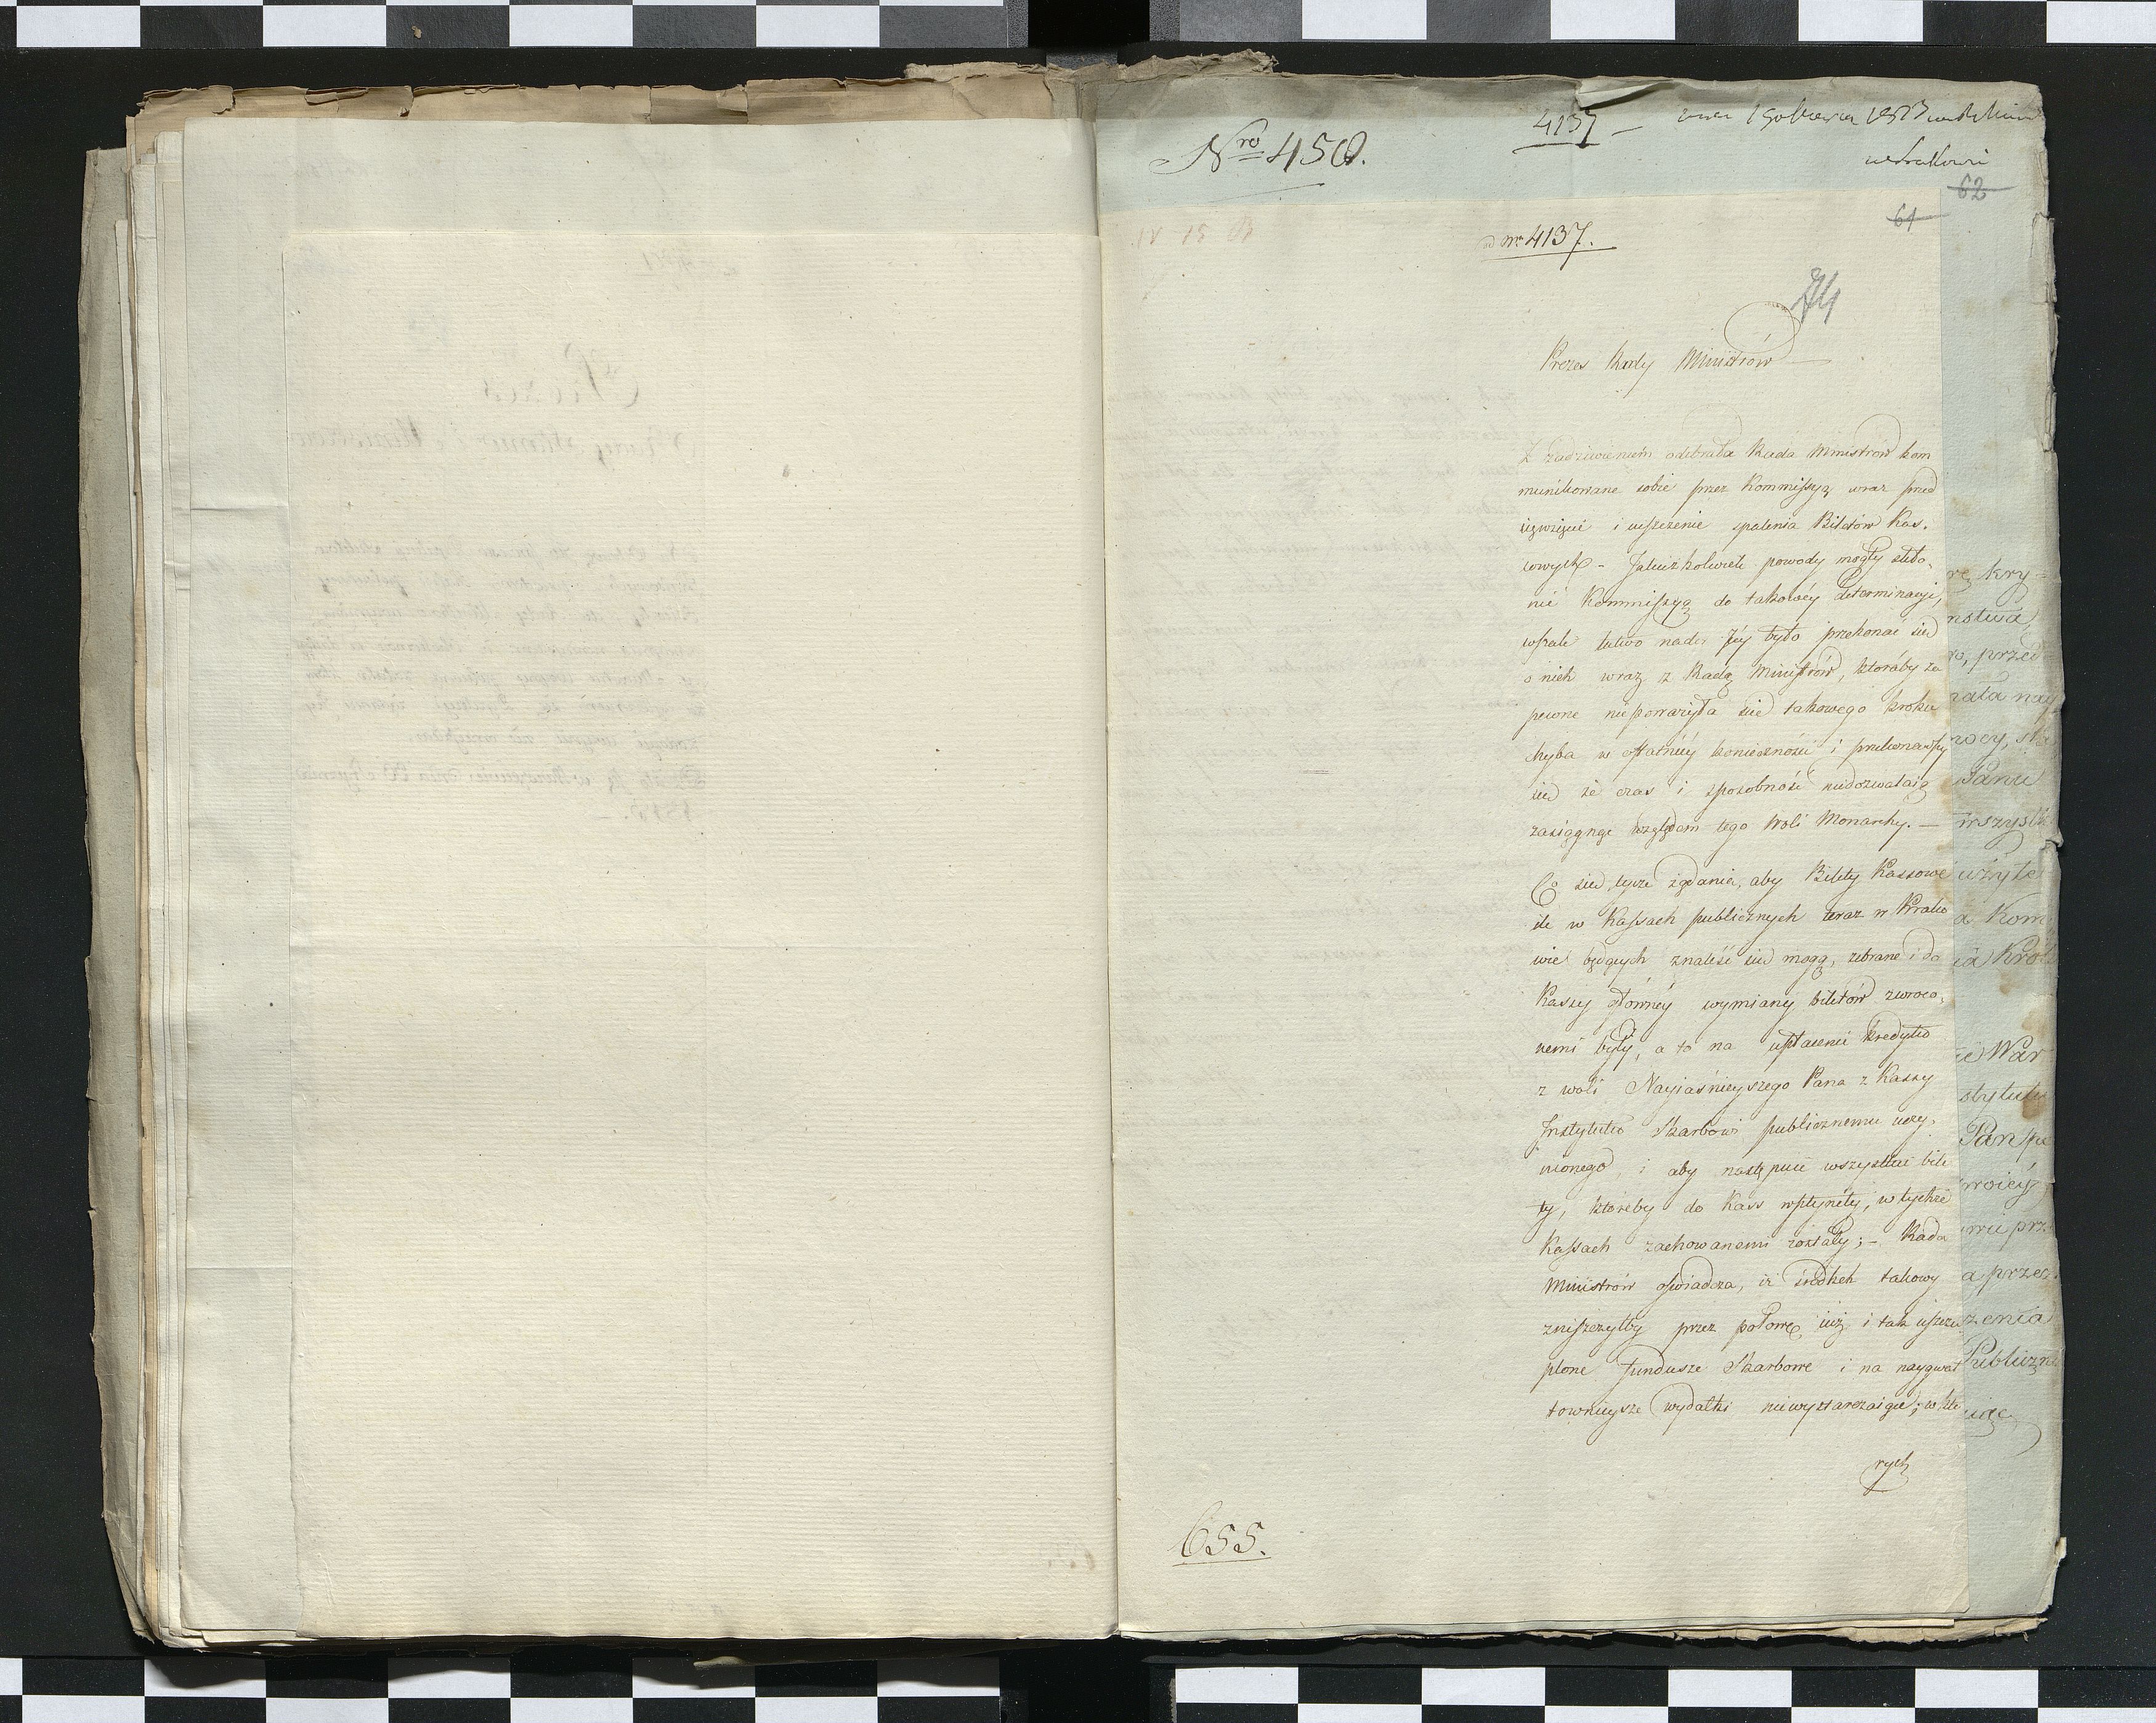 Nro 458.
4137 –
w Krakowi
62
61
ad Nr 4137.
74
Prezes Rady Ministrów
Z zadziwieniem odebrała Rada Ministrów kom
munikowane sobie przez Kommissyą wraz przed
sięwzięcie i uiszczenie spalenia Biletów Kas-
sowych – Jakieżkolwiek powody mogły skło-
nić Kommissyą do takowéy determinacyi,
wszak łatwo nader Jéy było przekonać sied
o nich wraz z Radą Ministrów, któraby za
pewne nieporważyła sied takowego kroku
chyba w ostatniéy konieczności i przekonawszy
sied że czas i sposobność niedozwalaią
zasięgnąć względem tego Woli Monarchy. –
Co sied tycze żądania, aby Bilety Kassowe
ile w Kassach publicznych teraz w Krako
wie będących znaleść sied mogą, zebrane i do
Kassy głównéy wymiany biletów zwróco-
nemi były, a to na upłacenie kredytu
z woli Nayiaśnieyszego Pana z Kassy
Instytutu Skarbowi publicznemu uczy-
nionego i aby następnie wszystkie bile
ty, któreby do Kass wpłynęły, w tychże
Kassach zachowanemi zostały; – Rada
Ministrów oświadcza, iż środek takowy
zniszczyłby przez połowę iuż i tak uszczu
plone fundusze Skarbowe i na naygwał
townieysze wydatki niewystarczaiące; w któ
rych
655.
kry-
nstwa,
przed
nata nay
Panu
wszystk
użyte
a Kom
Król
War
stytutu
Pan
woiéy
a przez
zenia
Publiczn